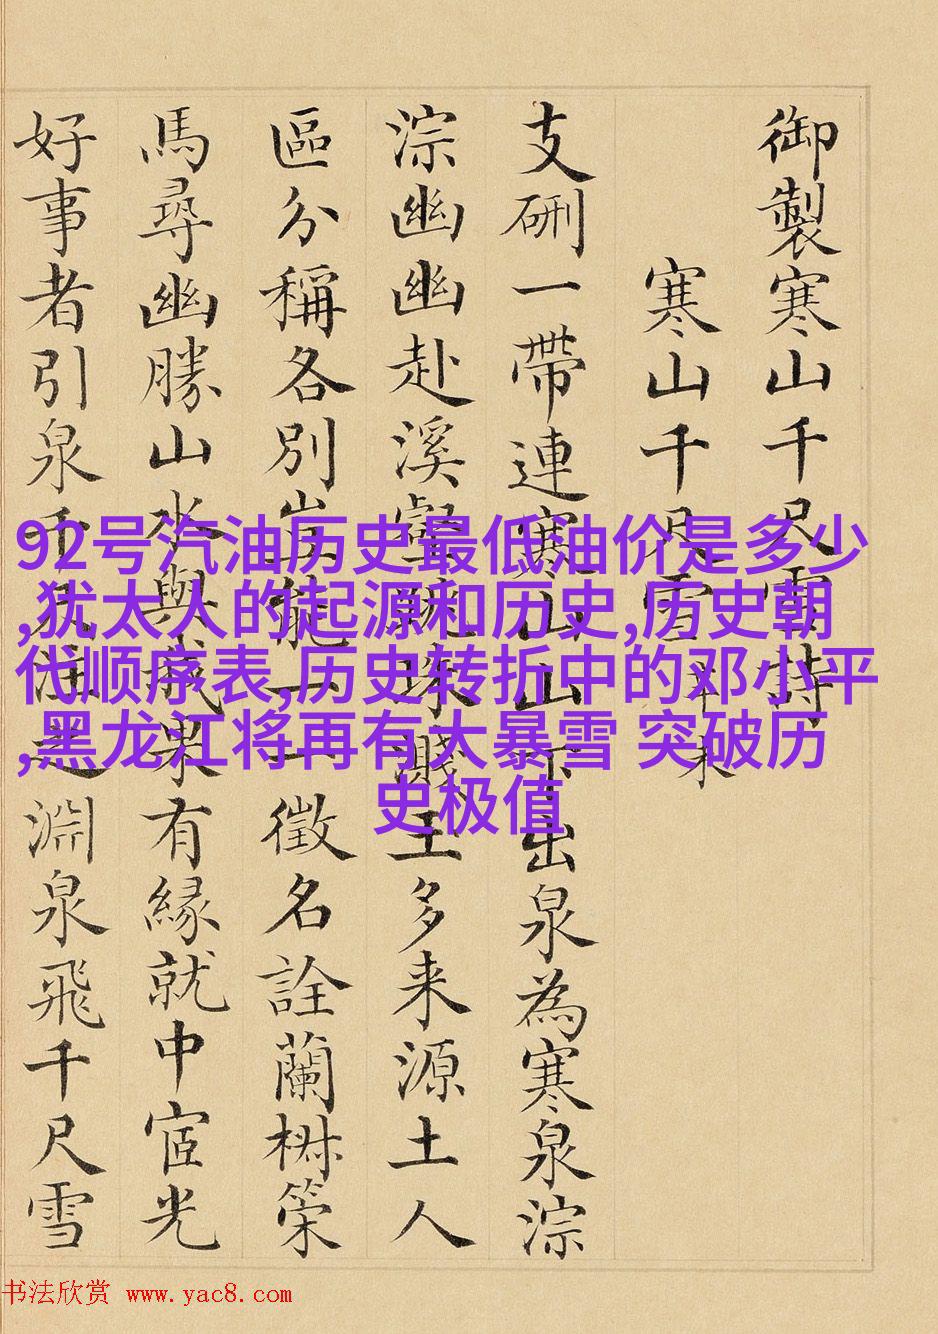 御製寒山千尺雪詩
寒山千尺雪 辛未
支硎一帶連寒山山下出泉為寒泉淙
淙幽幽赴溪壑跳珠濺玉多来源土人
區分稱各別豈能一一徵名詮蘭椒策
馬尋幽勝山水與我果有緣就中宧光
好事者引泉千尺注之淵泉飛千尺雪
92号汽油历史最低油价是多少
,犹太人的起源和历史,历史朝
代顺序表,历史转折中的邓小平
,黑龙江将再有大暴雪 突破历
史极值
书法欣赏 www.yac8.com